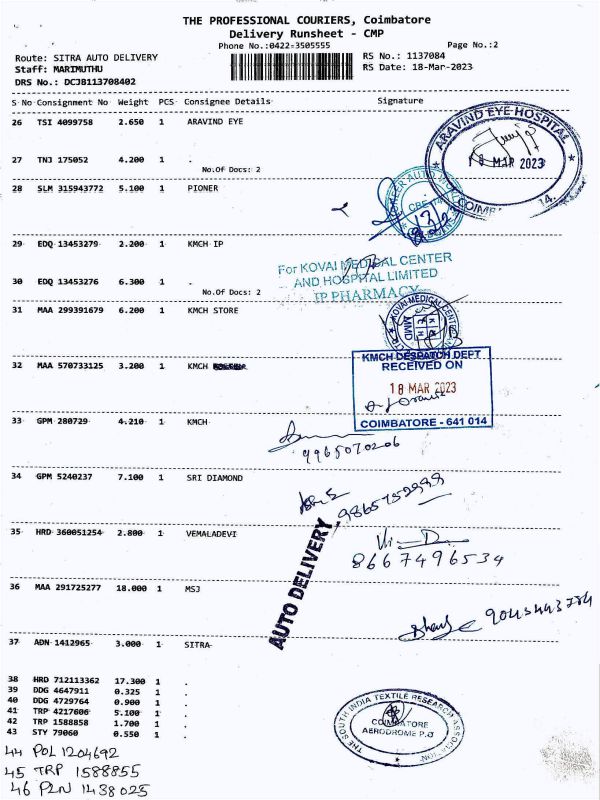 THE PROFESSIONAL COURIERS, Coimbatore
Delivery Runsheet - CMP
Phone No.:0422-3505555 Page No.:2
Route: SITRA AUTO DELIVERY RS No.: 1137084
Staff: MARIMUTHU RS Date: 18-Mar-2023
DRS No.: DCJB113708402
S No Consignment No Weight PCS Consignee Details Signature
26 TSI 4099758 2.650 1 ARAVIND EYE
ARAVIND EYE HOSPITAL
18 MAR 2023
27 TNJ 175052 4.200 1 .
No.Of Docs: 2
28 SLM 315943772 5.100 1 PIONER
29 EDQ 13453279 2.200 1 KMCH IP
For KOVAI MEDICAL CENTER
AND HOSPITAL LIMITED
IP PHARMACY
30 EDQ 13453276 6.300 1 .
No.Of Docs: 2
31 MAA 299391679 6.200 1 KMCH STORE
KOVAI MEDICAL CENTER
MMD
32 MAA 570733125 3.200 1 KMCH
KMCH DESPATCH DEPT
RECEIVED ON
18 MAR 2023
COIMBATORE - 641 014
33 GPM 280729 4.210 1 KMCH
9965070206
34 GPM 5240237 7.100 1 SRI DIAMOND
9865752999
AUTO DELIVERY
35 HRD 360051254 2.800 1 VEMALADEVI
8667496534
36 MAA 291725277 18.000 1 MSJ
37 ADN 1412965 3.000 1 SITRA
38 HRD 712113362 17.300 1 .
39 DDG 4647911 0.325 1 .
40 DDG 4729764 0.900 1 .
41 TRP 4217606 5.100 1 .
42 TRP 1588858 1.700 1 .
43 STY 79060 0.550 1 .
THE SOUTH INDIA TEXTILE RESEARCH ASSOCIATION
COIMBATORE
AERODROME P.O
44 POL 1204692
45 TRP 1588855
46 PLN 1438025